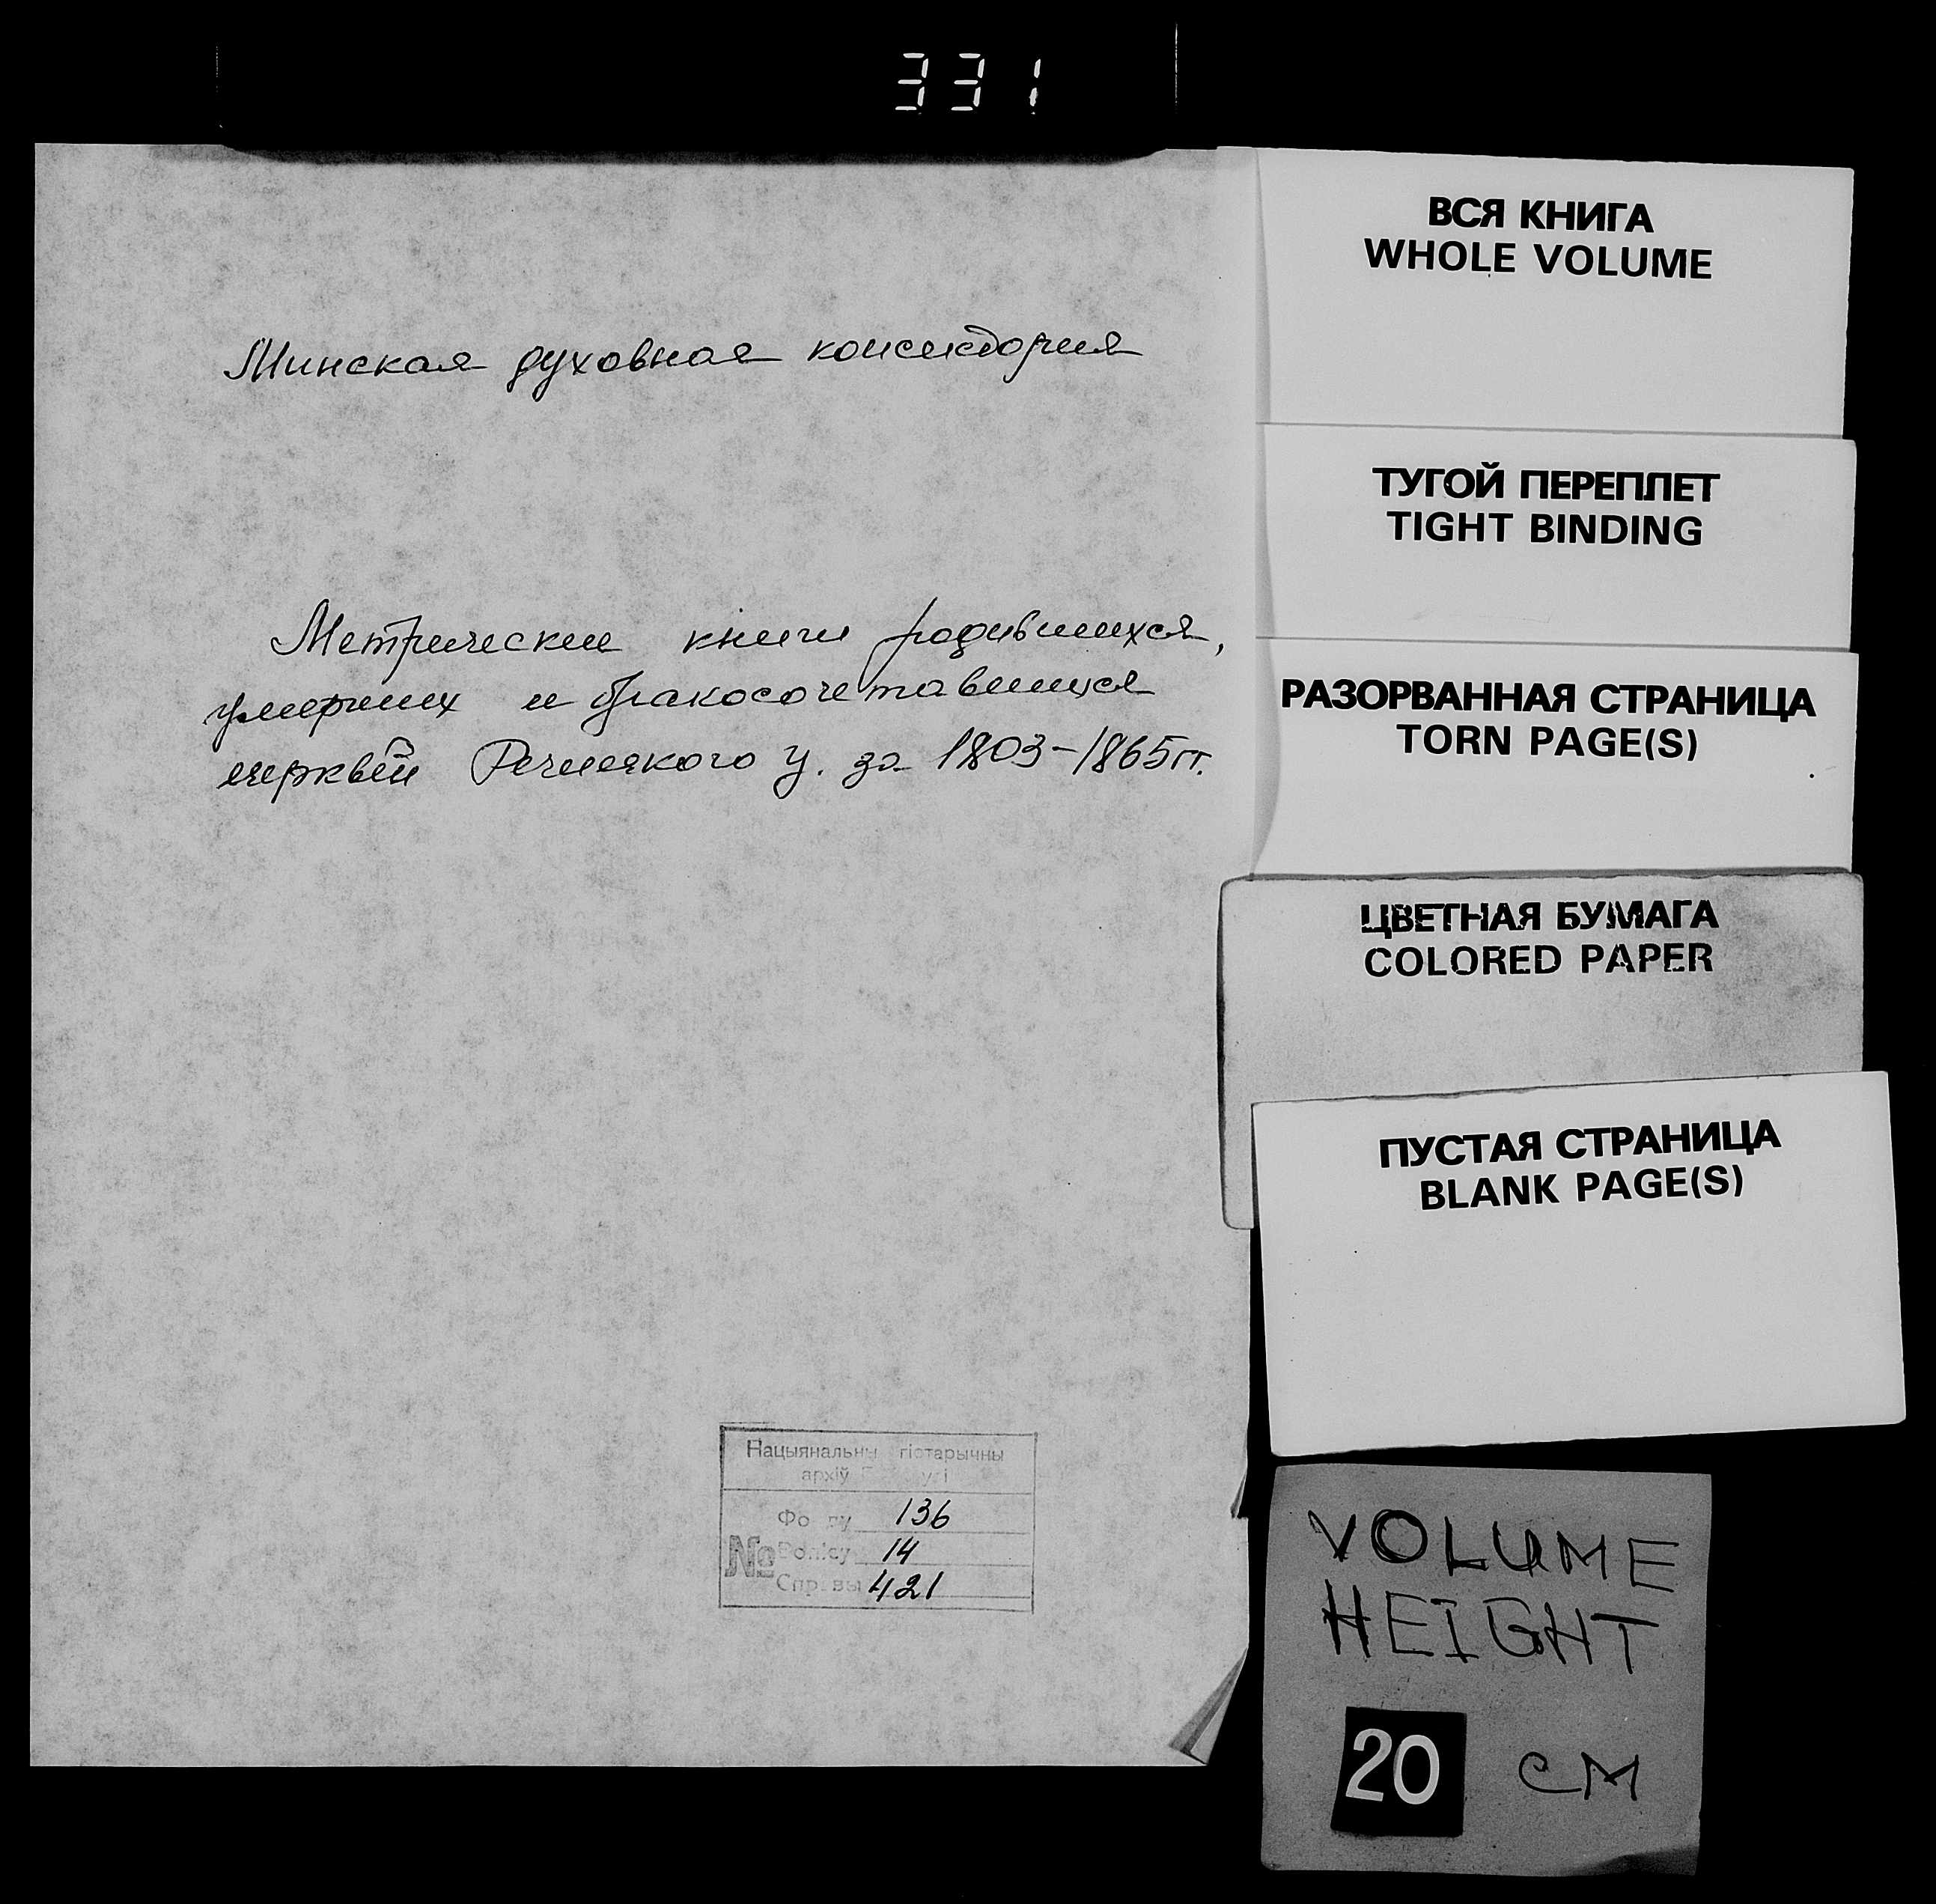 331
Минская духовная консистория
Метрические книги родившихся,
умерших и бракосочетавшихся
церквей Речицкого у. за 1803-1865гг.
Нацыянальны гістарычны
архіў
Фонду 136
№ Вопісу 14
Справы 421
ВСЯ КНИГА
WHOLE VOLUME
ТУГОЙ ПЕРЕПЛЕТ
TIGHT BINDING
РАЗОРВАННАЯ СТРАНИЦА
TORN PAGE(S)
ЦВЕТНАЯ БУМАГА
COLORED PAPER
ПУСТАЯ СТРАНИЦА
BLANK PAGE(S)
VOLUME
HEIGHT
20 см